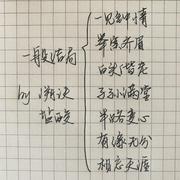 一般结局
by
一见钟情
举案齐眉
白头偕老
子孙满堂
半路变心
有缘无分
相忘天涯